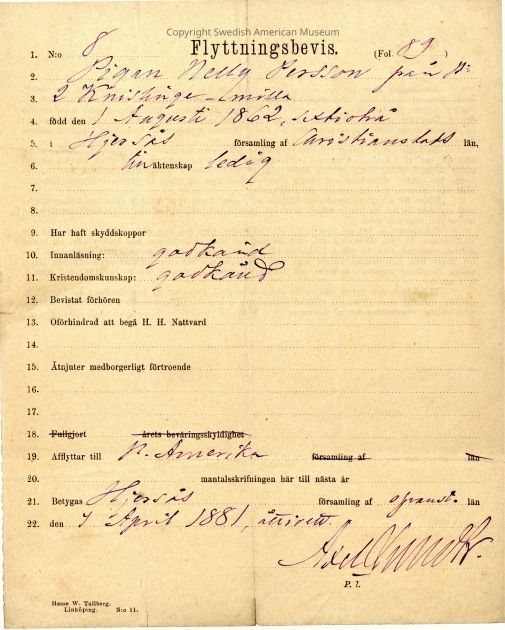 Copyright Swedish American Museum
Flyttningsbevis.
1. N:o 8 (Fol. 89.)
2. Pigan Nelly Persson från N:
3. 2 Knislinge
4. född den 1 Augusti 1862, sextiotvå
5. i Hjersås församling af Christianstads län,
6. äktenskap ledig
7.
8.
9. Har haft skyddskoppor
10. Innanläsning: godkänd
11. Kristendomskunskap: godkänd
12. Bevistat förhören
13. Oförhindrad att begå H. H. Nattvard
14.
15. Åtnjuter medborgerligt förtroende
16.
17.
18. Fullgjort årets beväringsskyldighet
19. Afflyttar till N. Amerika församling af län
20. mantalsskrifningen här till nästa år
21. Betygas Hjersås församling af län
22. den 7 April 1881, åttiett.
Axel
P. l.
Hasse W. Tullberg.
Linköping. N:o 11.